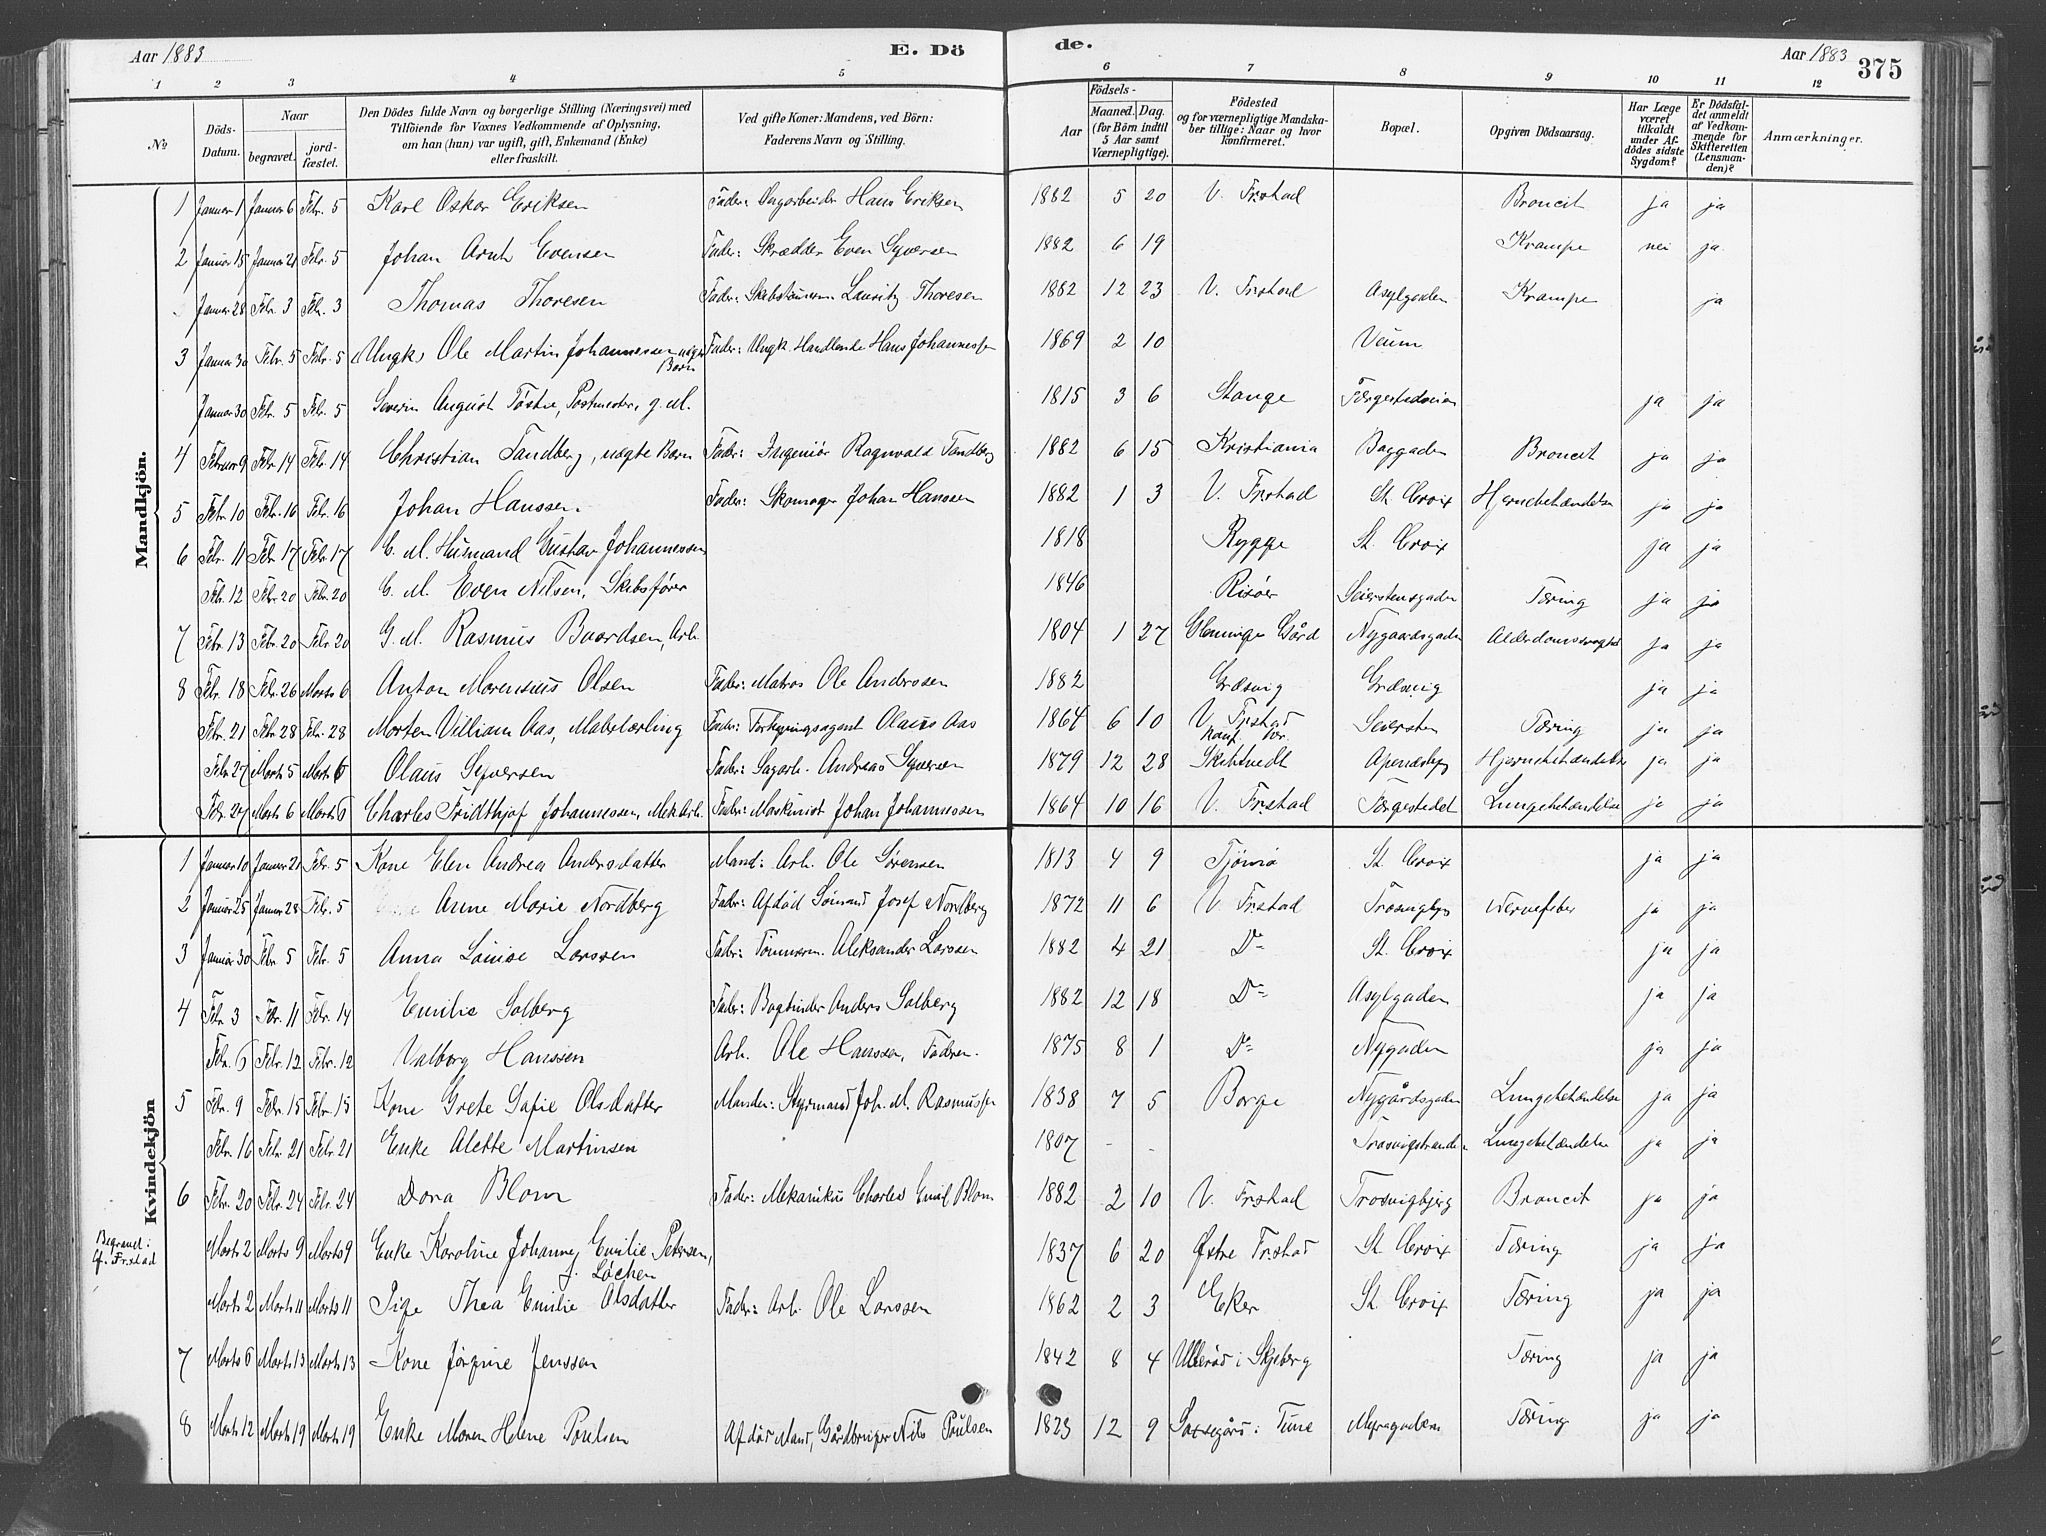 Aar 1883 E. Dö de. Aar 1883 375
1 2 3 4 5 6 7 8 9 10 11 12
№ Döds-Datum. Naar begravet. jord-fæstet. Den Dödes fulde Navn og borgerlige Stilling (Næringsvei) med Tilföiende for Voxnes Vedkommende af Oplysning, om han (hun) var ugift, gift, Enkemand (Enke) eller fraskilt. Ved gifte Koner: Mandens, ved Börn: Faderens Navn og Stilling. Födsels- Aar Maaned. Dag. (for Börn indtil 5 Aar samt Værnepligtige). Födested og for værnepligtige Mandskaber tillige: Naar og hvor konfirmeret. Bopæl. Opgiven Dödsaarsag. Har Læge været tilkaldt under Afdödes sidste Sygdom? Er Dödsfaldet anmeldt af Vedkommende for Skifteretten (Lensmanden)? Anmærkninger.
Mandkjön.
1 Januar 1 Januar 6 Febr. 5 Karl Oskar Eriksen Fader: Dagarbeider Hans Eriksen 1882 5 20 V. Frstad Broncit ja ja
2 Januar 15 Januar 21 Febr. 5 Johan Arnt Evensen Fader: Skrædder Even Syversen 1882 6 19 Krampe nei ja
Januar 28 Febr. 3 Febr. 3 Thomas Thoresen Fader: Skibstømmerm. Lauritz Thoresen 1882 12 23 V. Frstad Asylgaden Krampe ja
3 Januar 30 Febr. 5 Febr. 5 Ungk. Ole Martin Johannessen uægte Barn Fader: Ungk. Handlende Hans Johannessen 1869 2 10 Veum
Januar 30 Febr. 5 Febr. 5 Severin August Postmester, g. M. 1815 3 6 Stange ja ja
4 Februar 9 Febr. 14 Febr. 14 Christian Tandberg, uægte Barn Fader: Ingeniør Ragnvald Tandberg 1882 6 15 Kristiania Baggaden Broncit ja ja
5 Febr. 10 Febr. 16 Febr. 16 Johan Hanssen Fader: Skomager Johan Hanssen 1882 1 3 V. Frstad St. Croix Hjernebetændelse ja ja
6 Febr. 11 Febr. 17 Febr. 17 E. M. Husmand Gustav Johannessen 1818 Rygge St. Croix ja ja
Febr. 12 Febr. 20 Febr. 20 E. M. Even Nilsen, Skibsfører 1846 Risøer Seierstensgaden Tæring ja ja
7 Febr. 13 Febr. 20 Febr. 20 G. M. Rasmus Baardsen, Arb. 1804 1 27 Glemminge Gård Nygaardsgaden Alderdomssvaghed ja ja
8 Febr. 18 Febr. 26 Marts 6 Anton Marensius Olsen Fader: Matros Ole Andersen 1882 Græsvig Græsvig ja ja
Febr. 21 Febr. 28 Febr. 28 Morten Villiam Aas, Malerlærling Fader: Forhyringsagent Olaus Aas 1864 6 10 V. Frstad Seiersten Tæring ja ja
Febr. 27 Marts 5 Marts 6 Olaus Syversen Fader: Sagarb. Andreas Syversen 1879 12 28 Skibtvedt Apenesbyg Hjernebetændelse ja ja
Febr. 27 Marts 6 Marts 6 Charles Fridthjof Johannessen, Mek. Arb. Fader: Maskinist Johan Johannessen 1864 10 16 V. Frstad Færgestedet Lungebetændelse ja ja
Kvindekjön
1 Januar 10 Januar 21 Febr. 5 Kone Elen Andrea Andersdatter Mand: Arb. Ole Sørensen 1813 4 9 Tjømø St. Croix ja ja
2 Januar 25 Januar 28 Febr. 5 Anne Marie Nordberg Fader: Afdød Sømand Josef Nordberg 1872 11 6 V. Frstad Trosvigbyg Nervefeber ja ja
3 Januar 30 Febr. 5 Febr. 5 Anna Louise Larssen Fader: Tømmerm. Aleksander Larssen 1882 4 21 Do St. Croix ja ja
4 Febr. 3 Febr. 11 Febr. 14 Emilie Solberg Fader: Bogbinder Anders Solberg 1882 12 18 Do Asylgaden ja ja
Febr. 6 Febr. 12 Febr. 12 Valborg Hanssen Arb. Ole Hanssen, Faderen. 1875 8 1 Do Nygaden ja ja
5 Febr. 9 Febr. 15 Febr. 15 Kone Grete Sofie Olsdatter Manden: Styrmand Joh. M. Rasmussen 1838 7 5 Borge Nygårdsgaden Lungebetændelse ja ja
Febr. 16 Febr. 21 Febr. 21 Enke Alette Martinsen 1807 - - Trosvigstranden Lungebetændelse ja ja
6 Febr. 20 Febr. 24 Febr. 24 Dora Blom Fader: Mekanikus Charles Emil Blom 1882 2 10 V. Frstad Trosvigbjerg Broncit ja ja
Begravet i G. Fr.stad Marts 2 Marts 9 Marts 9 Enke Karoline Johanne Emilie Petersen, f. Løchen 1837 6 20 Østre Fr.stad St. Croix Tæring ja ja
Marts 2 Marts 11 Marts 11 Pige Thea Emilie Olsdatter Fader: Arb. Ole Larssen 1862 2 3 Eker St. Croix Tæring ja ja
7 Marts 6 Marts 13 Marts 13 Kone Jørgine Jenssen 1842 8 4 Ullerød i Skjeberg Tæring ja ja
8 Marts 12 Marts 19 Marts 19 Enke Maren Helene Poulsen Afdød Mand, Gårdbruger Nils Poulsen 1823 12 9 i Tune Myragaden Tæring ja ja